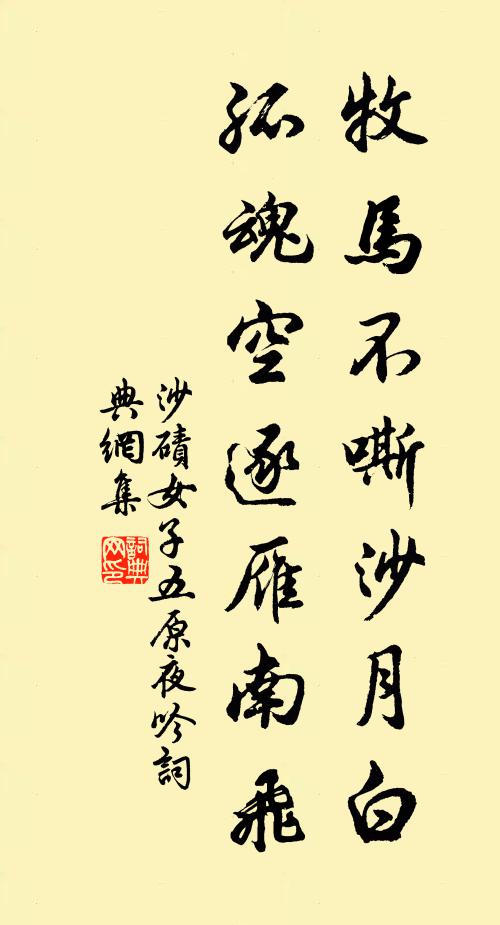 牧馬不嘶沙月白
孤魂空逐雁南飛
沙磧女子五原夜吟詞
典網集
詞典网印